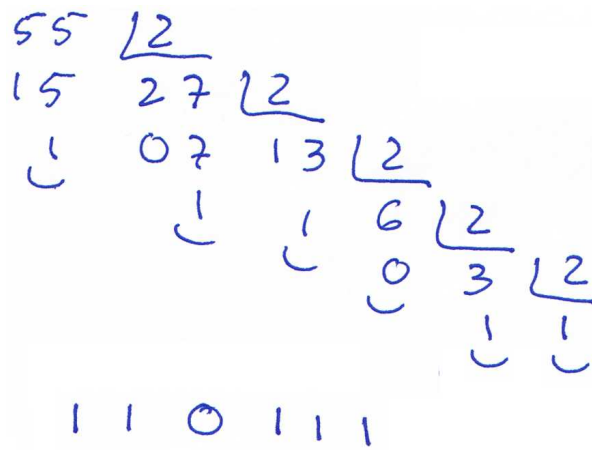 55 2
15 27 2
1 07 13 2
1 1 6 2
0 3 2
1 1
1 1 0 1 1 1